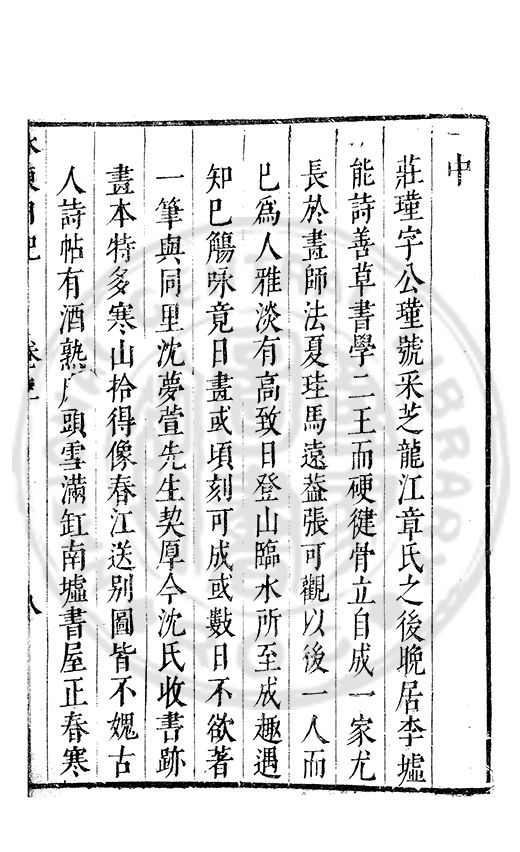 中
莊瑾字公瑾號采芝龍江章氏之後晚居李墟
能詩善草書學二王而硬健骨立自成一家尤
長於畫師法夏珪馬遠益張可觀以後一人而
巳爲人雅淡有高致日登山臨水所至成趣遇
知巳觴咏竟日畫或頃刻可成或數日不欲著
一筆與同里沈夢萱先生契厚今沈氏收書跡
畫本特多寒山拾得像春江送别圖皆不媿古
人詩帖有酒熟頭雪滿缸南墟書屋正春寒